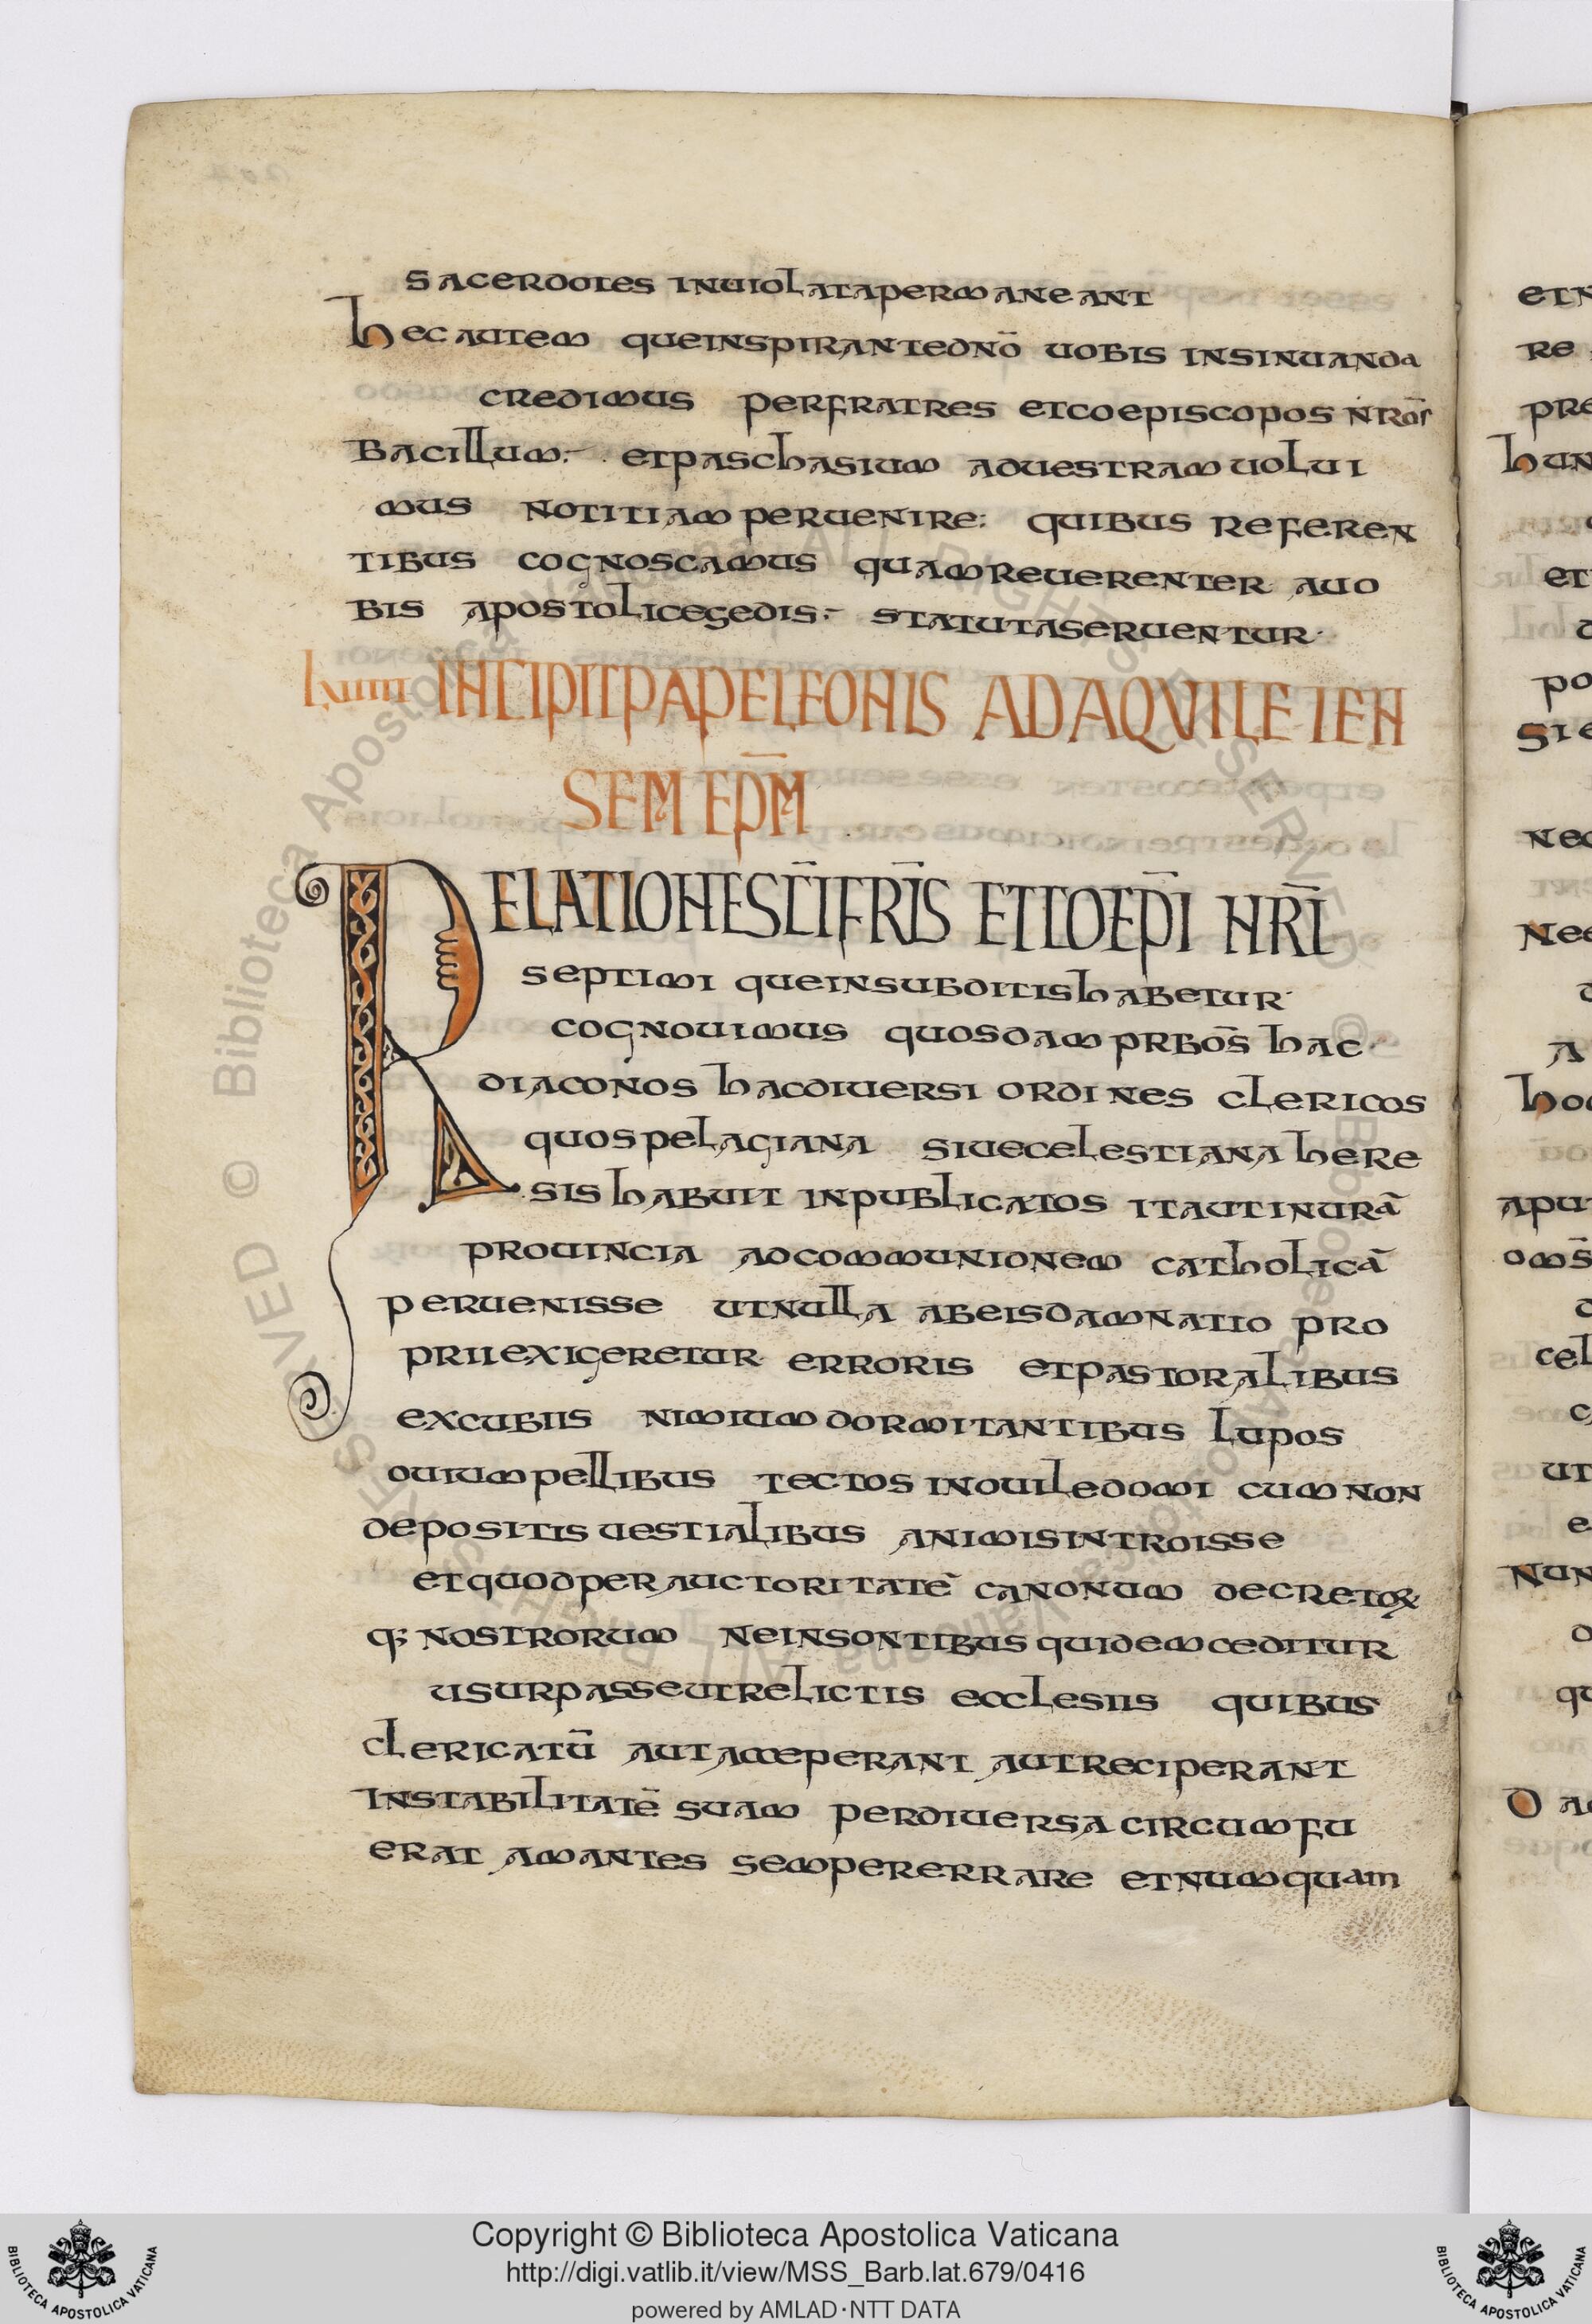 sacerdotes inuiolata permaneant
hec autem que inspirante dnō uobis insinuanda
credimus per fratres et coepiscopos nros̄
bacillum. et paschasium ad uestram uolui
mus notitiam peruenire: quibus referen
tibus cognoscamus quam reuerenter a uo
bis apostolice sedis. statuta seruentur
lxuiiii INCIPIT PAPE LEONIS AD AQVILEIEN
SEM EPM̄
RELATIONE SC̄I FRIS̄ ET COEPĪ NRĪ
septimi que in subditis habetur
cognouimus quosdam prbōs hac
diaconos hac diuersi ordines clericos
quos pelagiana siue celestiana here
sis habuit inpublicatos ita ut in urā
prouincia ad communionem catholicā
peruenisse ut nulla ab eis damnatio pro
prii exigeretur erroris et pastoralibus
excubiis nimium dormitantibus lupos
ouium pellibus tectos in ouile domi cum non
depositis uestialibus animis introisse
et quod per auctoritatē canonum decretoꝝ
q; nostrorum ne insontibus quidem ceditur
usurpasse ut relictis ecclesiis quibus
clericatū aut acceperant aut reciperant
instabilitatē suam per diuersa circumfu
erat amantes semper errare et numquam
etn
re
pre
hun
et
po
sie
nec
nec
a
hoc
apu
oms̄
cel
ut
e
nun
qu
d ac
Copyright © Biblioteca Apostolica Vaticana
http://digi.vatlib.it/view/MSS_Barb.lat.679/0416
powered by AMLAD·NTT DATA
BIBLIOTECA APOSTOLICA VATICANA
BIBLIOTECA APOSTOLICA VATICANA